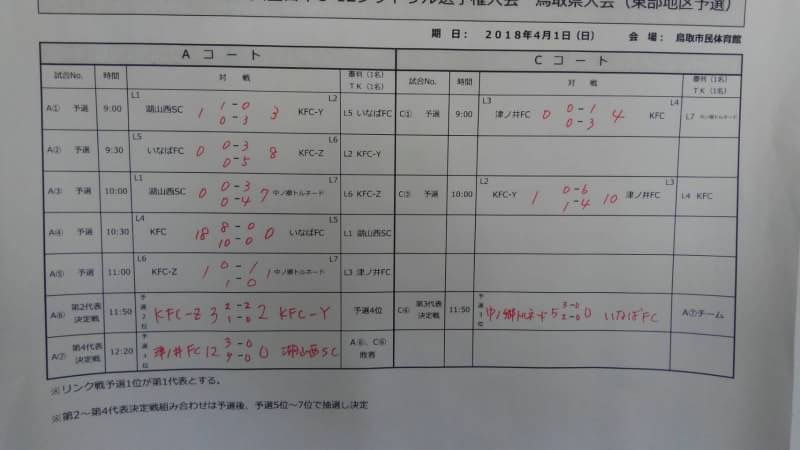 U-12フットサル選手権大会 鳥取県大会（東部地区予選）
期 日： 2018年4月1日（日） 会 場： 鳥取市民体育館
Aコート Cコート
試合No. 時間 対 戦 審判（1名） TK（1名） 試合No. 時間 対 戦 審判（1名） TK（1名）
A① 予選 9:00 L1 湖山西SC 1 1-0 0-3 3 L2 KFC-Y L5 いなばFC C① 予選 9:00 L3 津ノ井FC 0 0-1 0-3 4 L4 KFC L7 中ノ郷トルネード
A② 予選 9:30 L5 いなばFC 0 0-3 0-5 8 L6 KFC-Z L2 KFC-Y
A③ 予選 10:00 L1 湖山西SC 0 0-3 0-4 7 L7 中ノ郷トルネード L6 KFC-Z C③ 予選 10:00 L2 KFC-Y 1 0-6 1-4 10 L3 津ノ井FC L4 KFC
A④ 予選 10:30 L4 KFC 18 8-0 10-0 0 L5 いなばFC L1 湖山西SC
A⑤ 予選 11:00 L6 KFC-Z 1 0-1 1-0 1 L7 中ノ郷トルネード L3 津ノ井FC
A⑥ 第2代表決定戦 11:50 予選2位 KFC-Z 3 2-2 1-0 2 KFC-Y 予選4位 C⑥ 第3代表決定戦 11:50 中ノ郷トルネード 5 3-0 2-0 0 いなばFC A⑦チーム
A⑦ 第4代表決定戦 12:20 津ノ井FC 12 3-0 9-0 0 湖山西SC A⑥、C⑥ 敗者
※リンク戦予選1位が第1代表とする。
※第2～第4代表決定戦組み合わせは予選後、予選5位～7位で抽選し決定